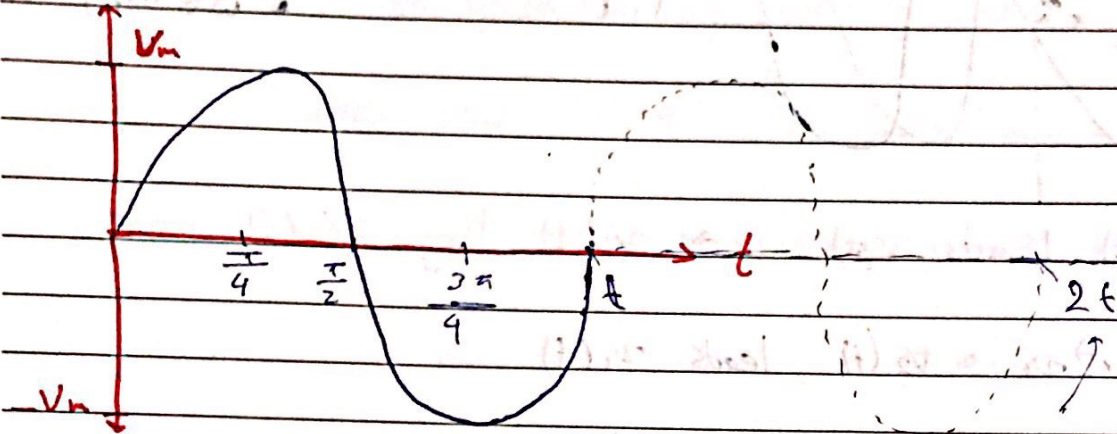 Vm
π/4 π/2 3π/4 t t 2t
-Vm